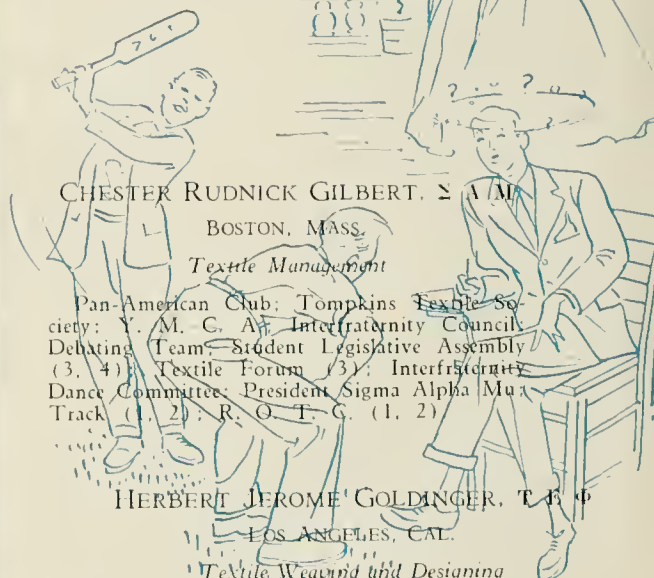 CHESTER RUDNICK GILBERT, Σ A M
BOSTON, MASS.
Textile Management
Pan-American Club; Tompkins Textile So-
ciety; Y. M. C. A.; Interfraternity Council;
Debating Team; Student Legislative Assembly
(3, 4); Textile Forum (3); Interfraternity
Dance Committee; President Sigma Alpha Mu;
Track (1, 2); R. O. T. C. (1, 2)
HERBERT JEROME GOLDINGER, T E Φ
LOS ANGELES, CAL.
Textile Weaving and Designing